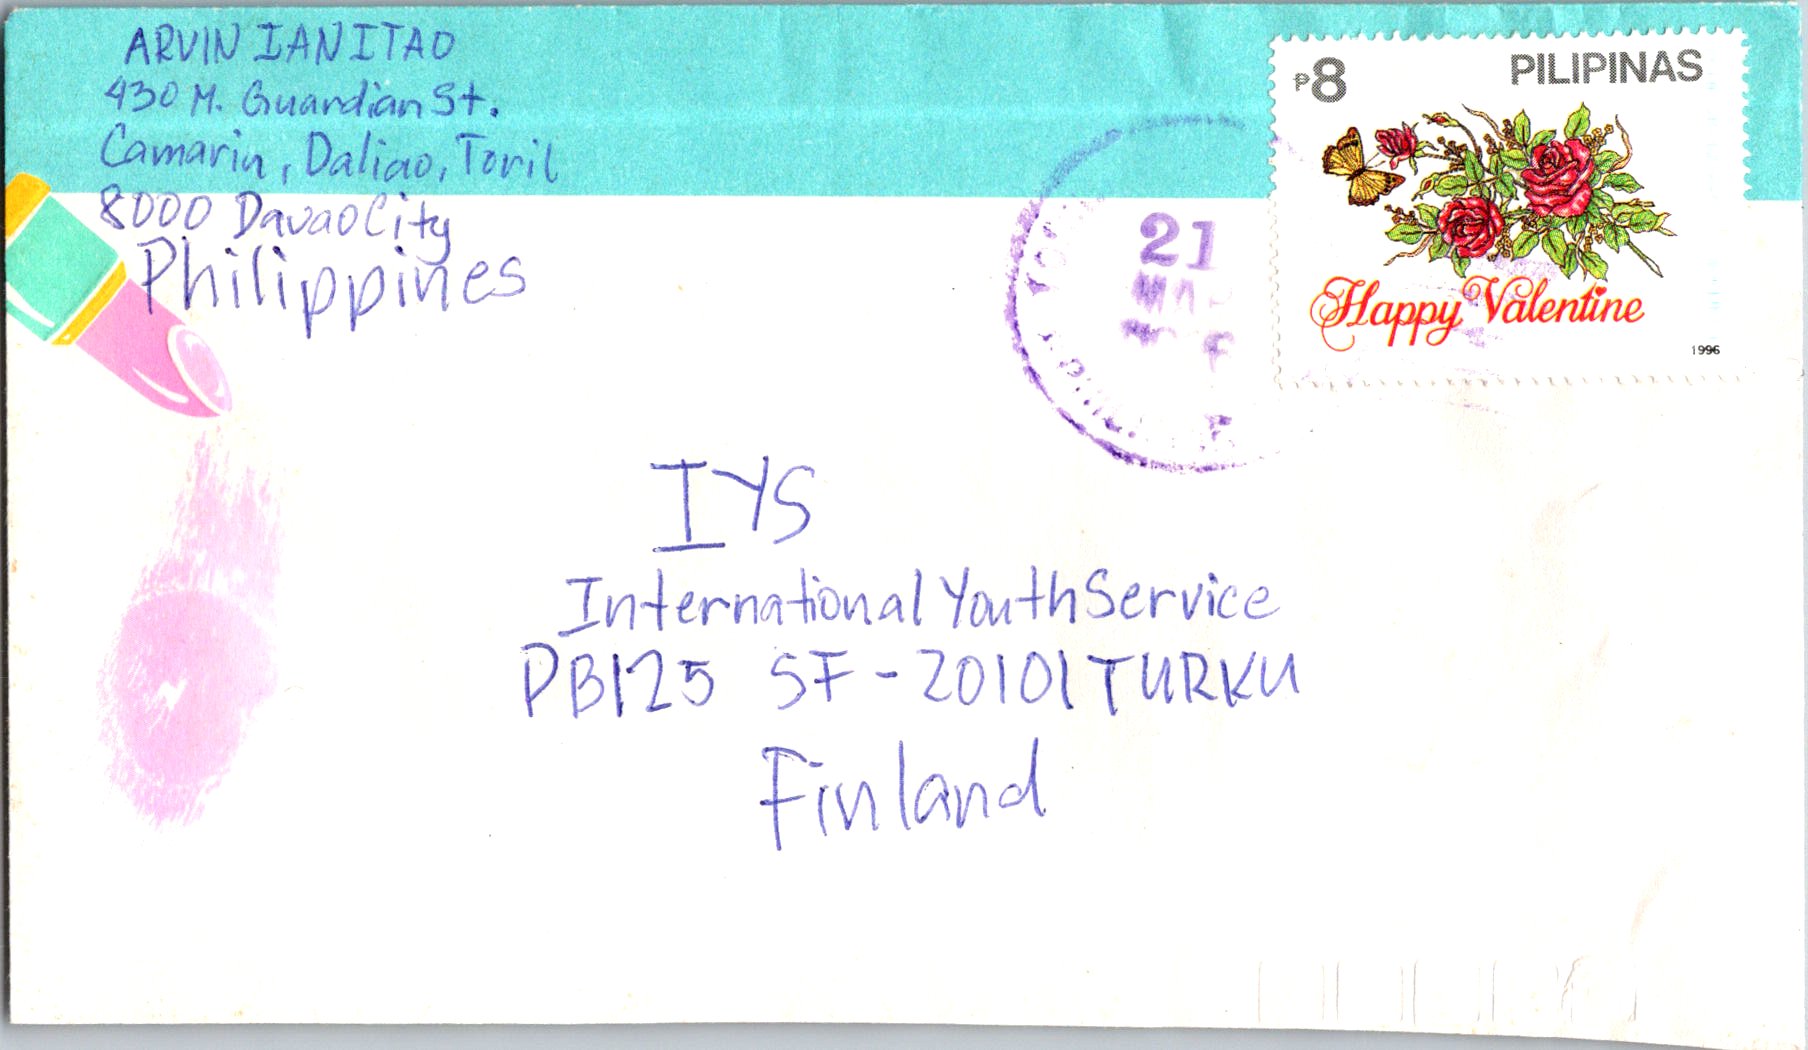 ARVIN IAN ITAO
430 M. Guardian St.
Camarin, Daliao, Toril
8000 Davao City
Philippines
₱8
PILIPINAS
Happy Valentine
1996
21
IYS
International Youth Service
PB125 SF-20101 TURKU
Finland